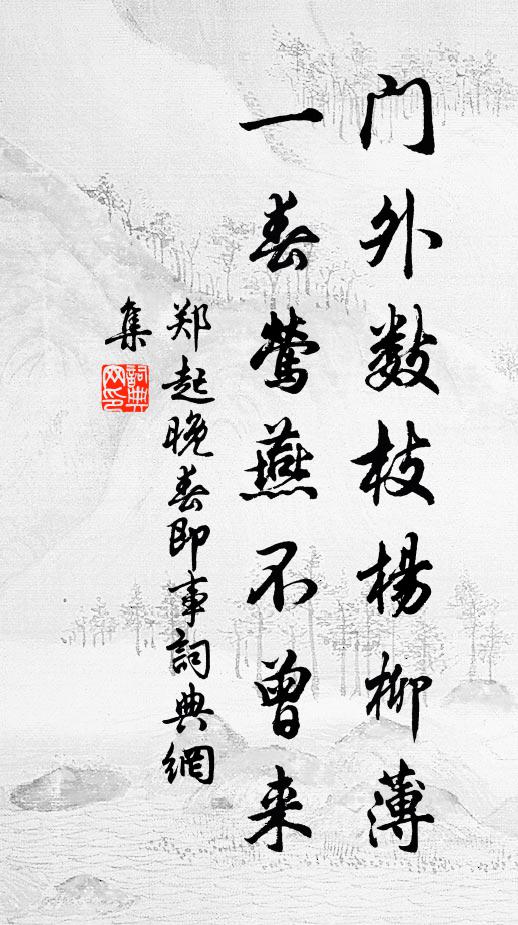 门外数枝杨柳薄
一春莺燕不曾来
郑起晚春即事詞典網
集
詞典网印